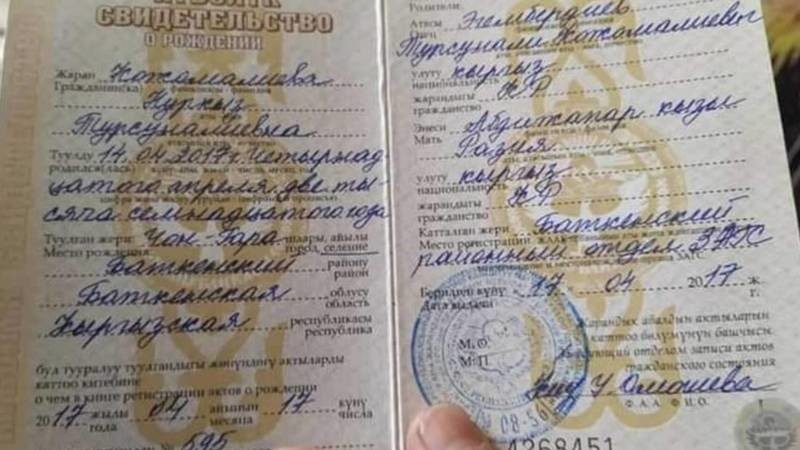 СВИДЕТЕЛЬСТВО
О РОЖДЕНИИ
Жаран Кожомалиева
Гражданин(ка)
Нуркыз
Турсуналиевна
Туулду 14.04.2017г. Четырнад
родился(лась)
цатого апреля две ты
сяча семнадцатого года
Туулган жери: Чон-Гара шаары, айылы
Место рождения город, селение
Баткенский району
район
Баткенская облусу
область
Кыргызская республикасы
республика
бул тууралуу туулгандыгы жөнүндөгү актыларды
каттоо китебине
о чем в книге регистрации актов о рождении
2017 жылы 04 айынын 17 күнү
года месяца числа
№ 595
Родители:
Атасы Эгембердиев
Отец
Турсунали Кожомалиевич
улуту кыргыз
национальность
жарандыгы КР
гражданство
Энеси Абдижапар кызы
Мать Разия
улуту кыргыз
национальность
жарандыгы КР
гражданство
Катталган жери Баткенский
Место регистрации
районный отдел ЗАГС
Берилген күнү 17 04 2017 ж
Дата выдачи г.
Жарандык абалдын актыларын
каттоо бөлүмүнүн башчысы
Заведующий отделом записи актов
гражданского состояния
М. О.
М. П.
У. Омошева
Ф.А.А. Ф.И.О.
4268451